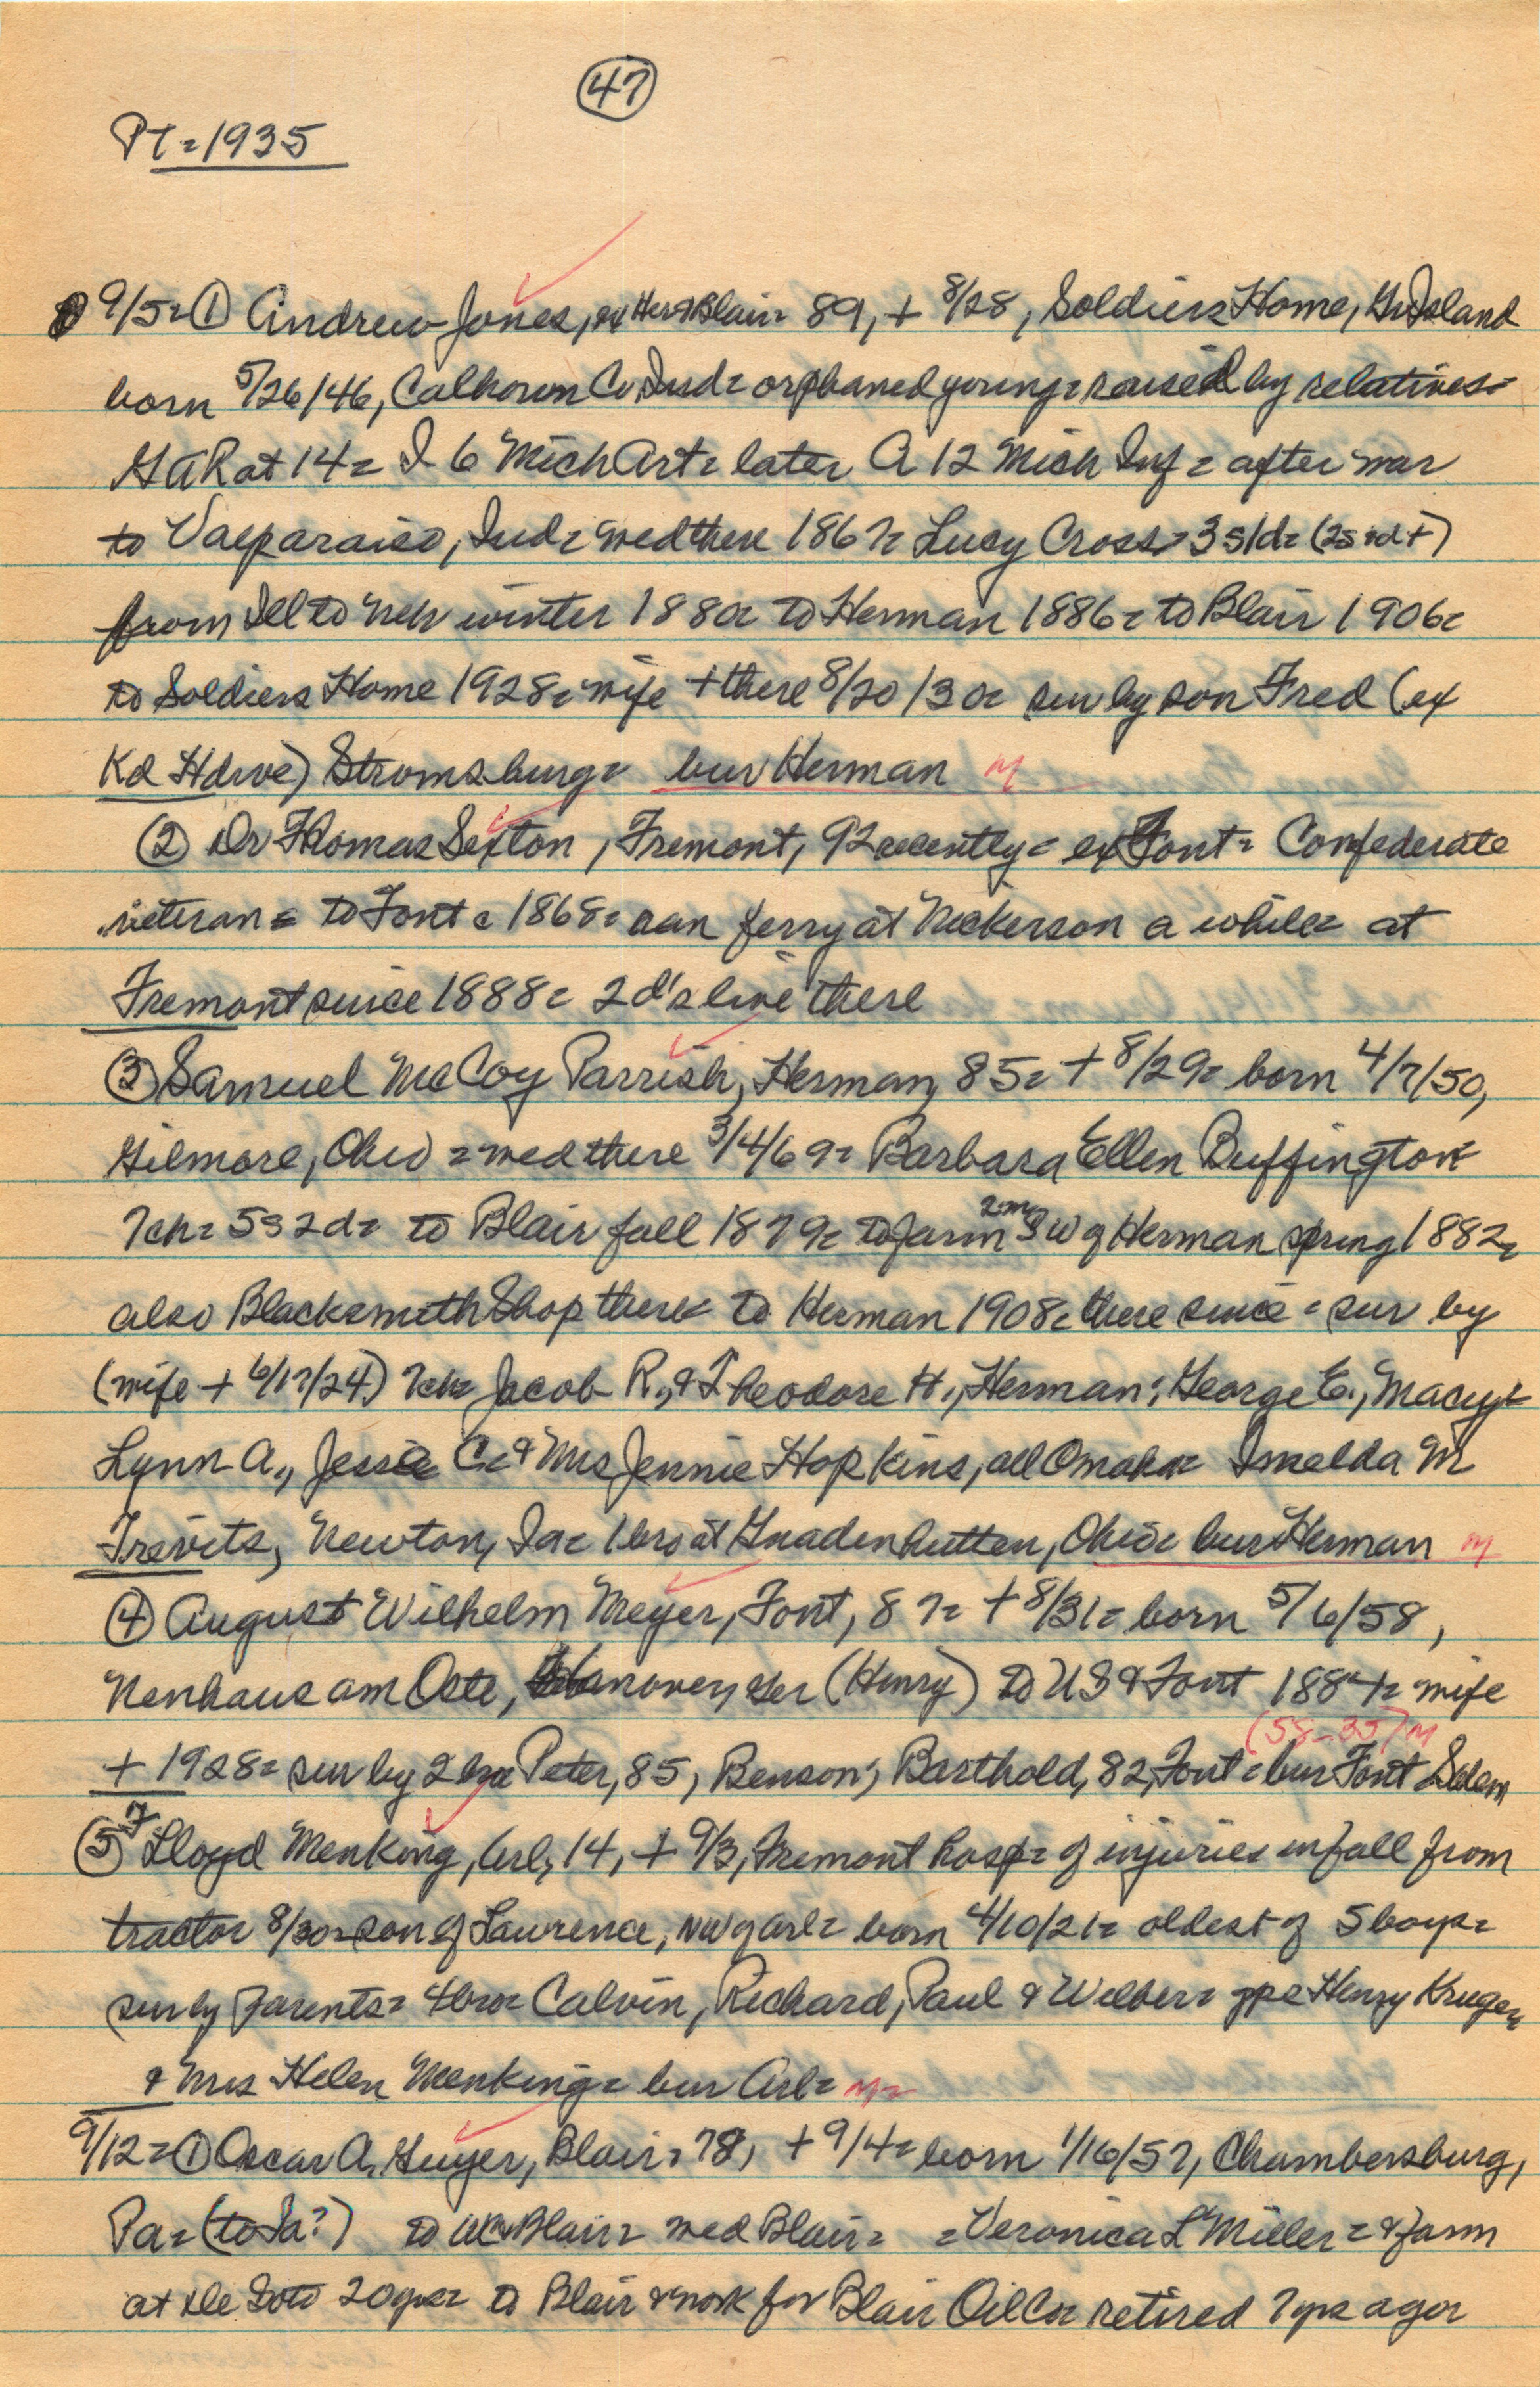 47
PT = 1935
9/5 = ① Andrew Jones, ex Her & Blair = 89, + 8/28, Soldiers Home, Gr Island
born 5/26/46, Calhoun Co, Ind = orphaned young = raised by relatives =
GAR at 14 = I 6 Mich Art = later A 12 Mich Inf = after war
to Valparaiso, Ind = med there 1867 = Lucy Cross = 3s1d = (2s & d +)
from Ill to Neb winter 1880 = to Herman 1886 = to Blair 1906 =
to Soldiers Home 1928 = wife + there 8/20/30 = sur by son Fred (ex
Kd Hdwe) Stromsburg = bur Herman M
② Dr Thomas Sexton, Fremont, 92 recently = ex Font = Confederate
veteran = to Font c 1868 = ran ferry at Nickerson a while = at
Fremont since 1888 = 2 d's live there
③ Samuel McCoy Parrish, Herman, 85 = + 8/29 = born 4/7/50,
Gilmore, Ohio = med there 3/4/69 = Barbara Ellen Buffington =
7ch = 5s 2d = to Blair fall 1879 = to farm 2m SW of Herman spring 1882 =
also Blacksmith Shop there = to Herman 1908 = there since = sur by
(wife + 6/17/24) 7ch = Jacob R., & Theodore H., Herman; George E., Macy =
Lynn A., Jessie C. = & Mrs Jennie Hopkins, all Omaha = Imelda M
Trevits, Newton, Ia = 1 bro at Gnadenhutten, Ohio = bur Herman M
④ August Wilhelm Meyer, Font, 87 = + 8/31 = born 5/6/58,
Nenhaus am Oste, Hanover, Ger (Henry) to US & Font 1884 = wife
(58-35) M
+ 1928 = sur by 2 bro Peter, 85, Benson; Barthold, 82, Font = bur Font Salem
⑤ 7 Lloyd Menking, Arl, 14, + 9/3, Fremont hosp = of injuries in fall from
tractor 8/30 = son of Lawrence, NW of Arl = born 4/10/21 = oldest of 5 boys =
sur by parents = 4 bro = Calvin, Richard, Paul & Wilber = gps Henry Kruger
& Mrs Helen Menking = bur Arl = M =
9/12 = ① Oscar A. Guyer, Blair, 78, + 9/4 = born 1/16/57, Chambersburg,
Pa = (to Ia?) to Blair = med Blair = = Veronica L Miller = & farm
at De Soto 20 yrs = to Blair & work for Blair Oil Co = retired 7 yrs ago =